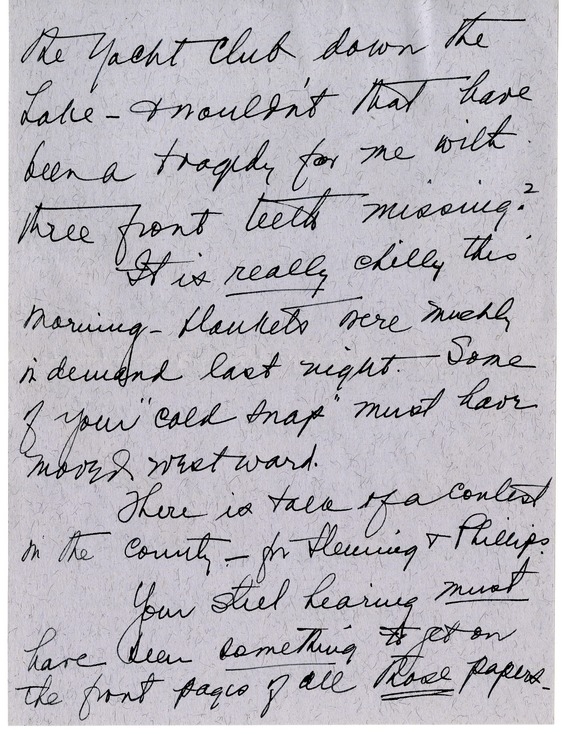 the Yacht Club down the
Lake - & wouldn't that have
been a tragedy for me with
three front teeth missing?
It is really chilly this
morning - blankets were muchly
in demand last night. Some
of your "cold snap" must have
moved westward.
There is talk of a contest
in the County - for Fleming & Phillips.
Your steel hearing must
have been something to get on
the front pages of all those papers -